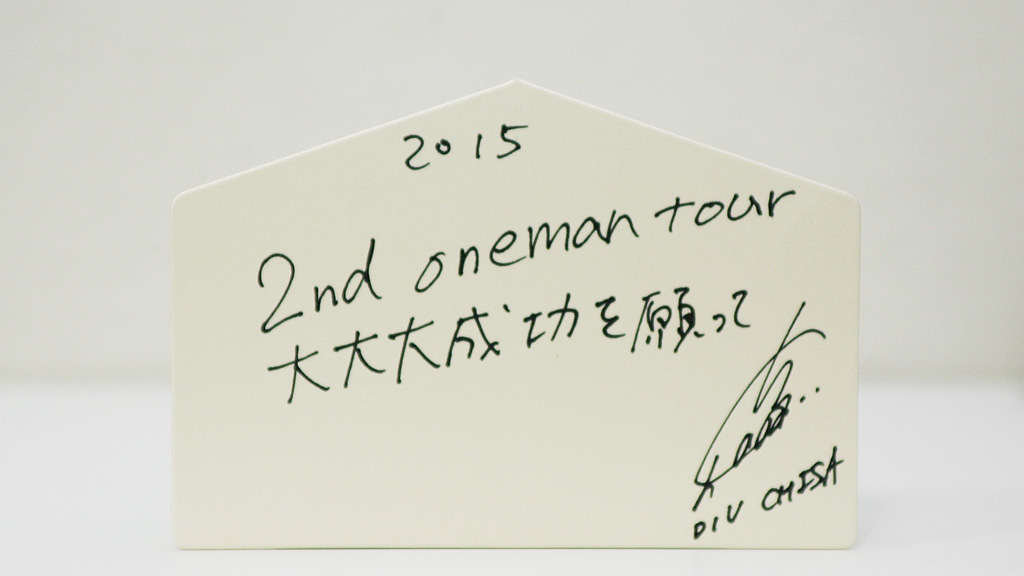 2015
2nd oneman tour
大大大成功を願って
DIV CHISA